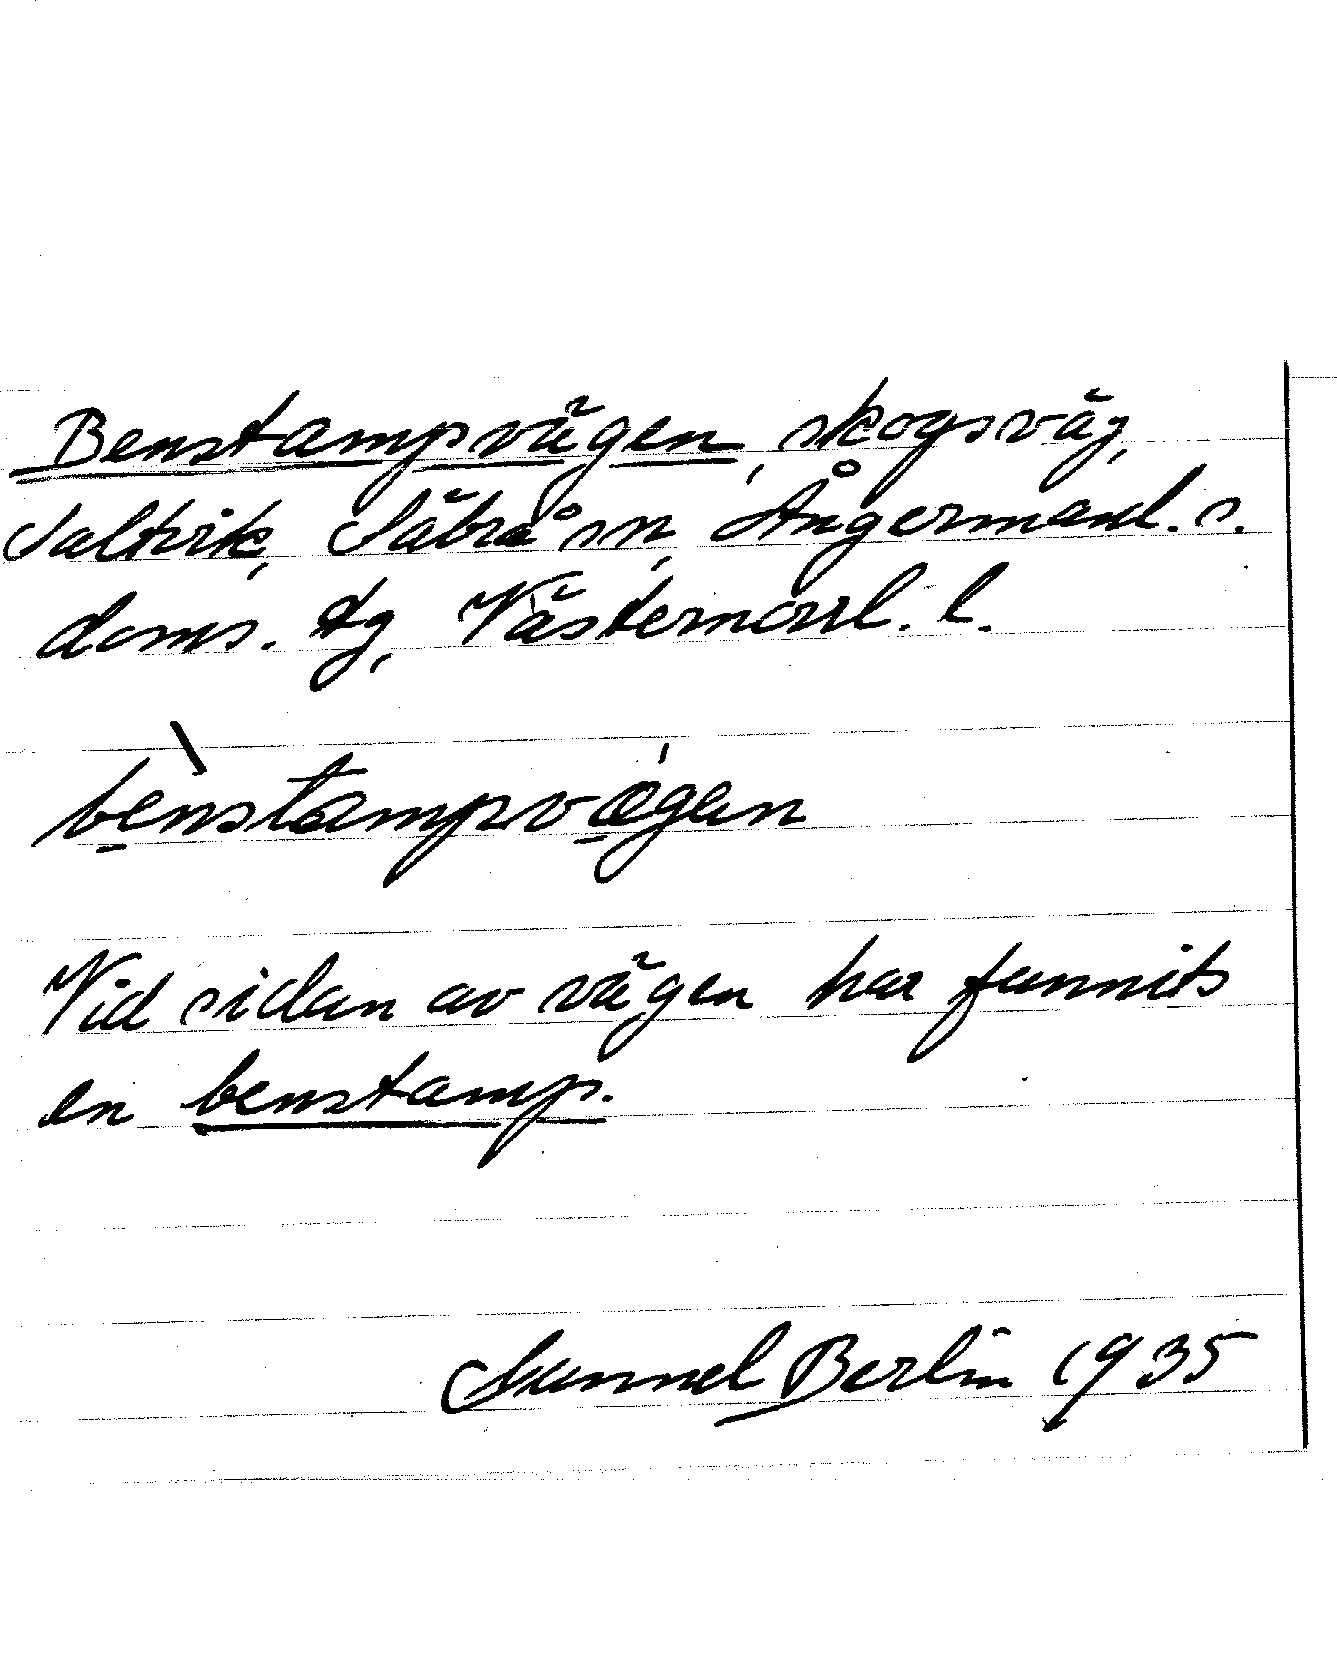 Benstampvägen, skogsväg,
Saltvik, Säbrå sn, Ångermanl. s.
doms. tg, Västernorrl. l.
bènstampvǽgan
Vid sidan av vägen har funnits
en benstamp.
Samuel Berlin 1935